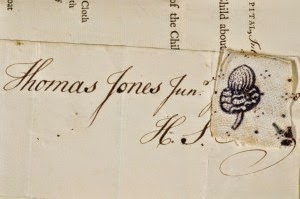 Cloth
of the Chil
hild about
PITAL,
Thomas Jones Junr
H. S.